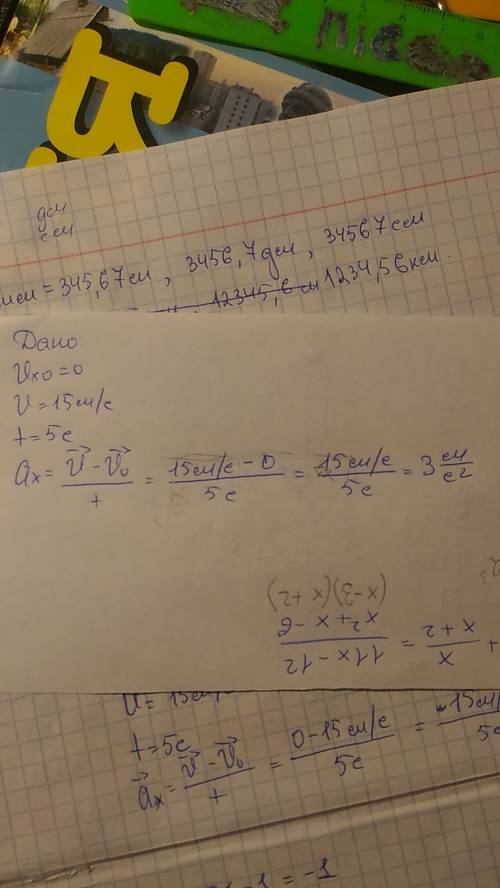 дм
см
= 345,67 м , 3456,7 дм , 34567 см
12345,6 м 1234,56 км.
Дано:
Vx0 = 0
V = 15 м/с
t = 5 с
ax = (V⃗ - V⃗0)/t = (15 м/с - 0)/5 с = (15 м/с)/5 с = 3 м/с²
x/(x+2) = (11x - 12)/(x² + x - 6)
(x-3)(x+2)
V = 15 м/с
t = 5 с
a⃗x = (V⃗ - V⃗0)/t = (0 - 15 м/с)/5 с = -15 м/с/5 с
-1 = -1